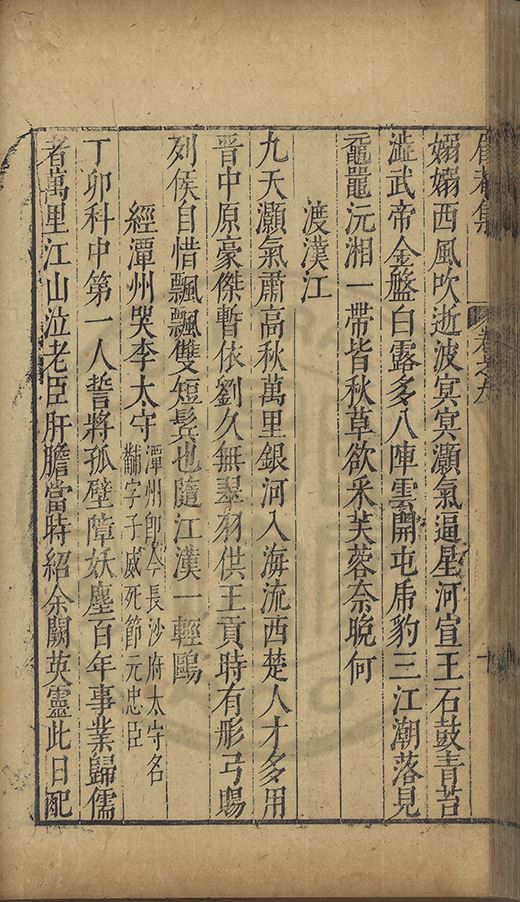 眉菴集 卷之九 十
嫋嫋西風吹逝波冥冥灝氣逼星河宣王石鼓青苔
澁武帝金盤白露多八陣雲開屯乕豹三江潮落見
黿鼉沅湘一帶皆秋草欲采芙蓉奈晚何
渡漢江
九天灝氣肅高秋萬里銀河入海流西楚人才多用
晉中原豪傑暫依劉久無翠羽供王貢時有彤弓賜
列侯自惜飄飄雙短鬂也隨江漢一輕鷗
經潭州哭李太守 潭州卽今長沙府太守名黼字子威死節元忠臣
丁卯科中第一人誓將孤壁障妖塵百年事業歸儒
者萬里江山泣老臣肝膽當時紹余闕英靈此日配